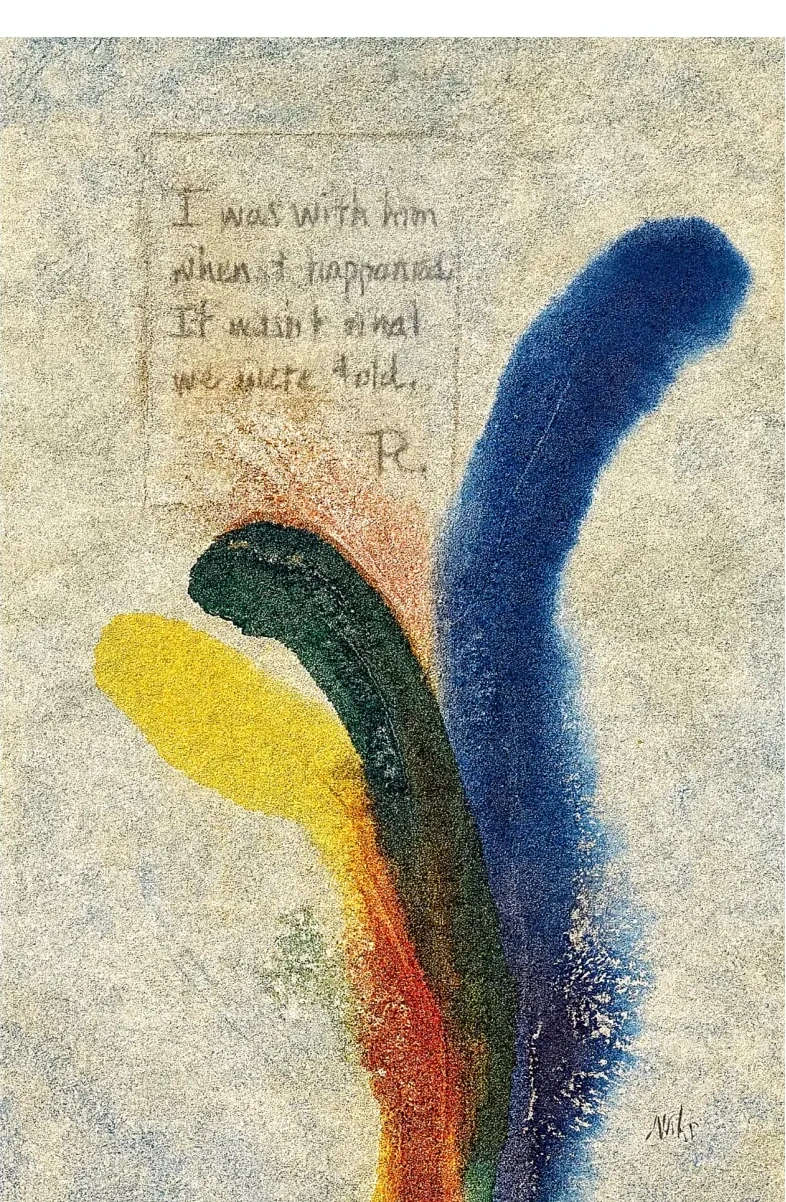 I was with him
when it happened
It wasn't what
we were told.
R.